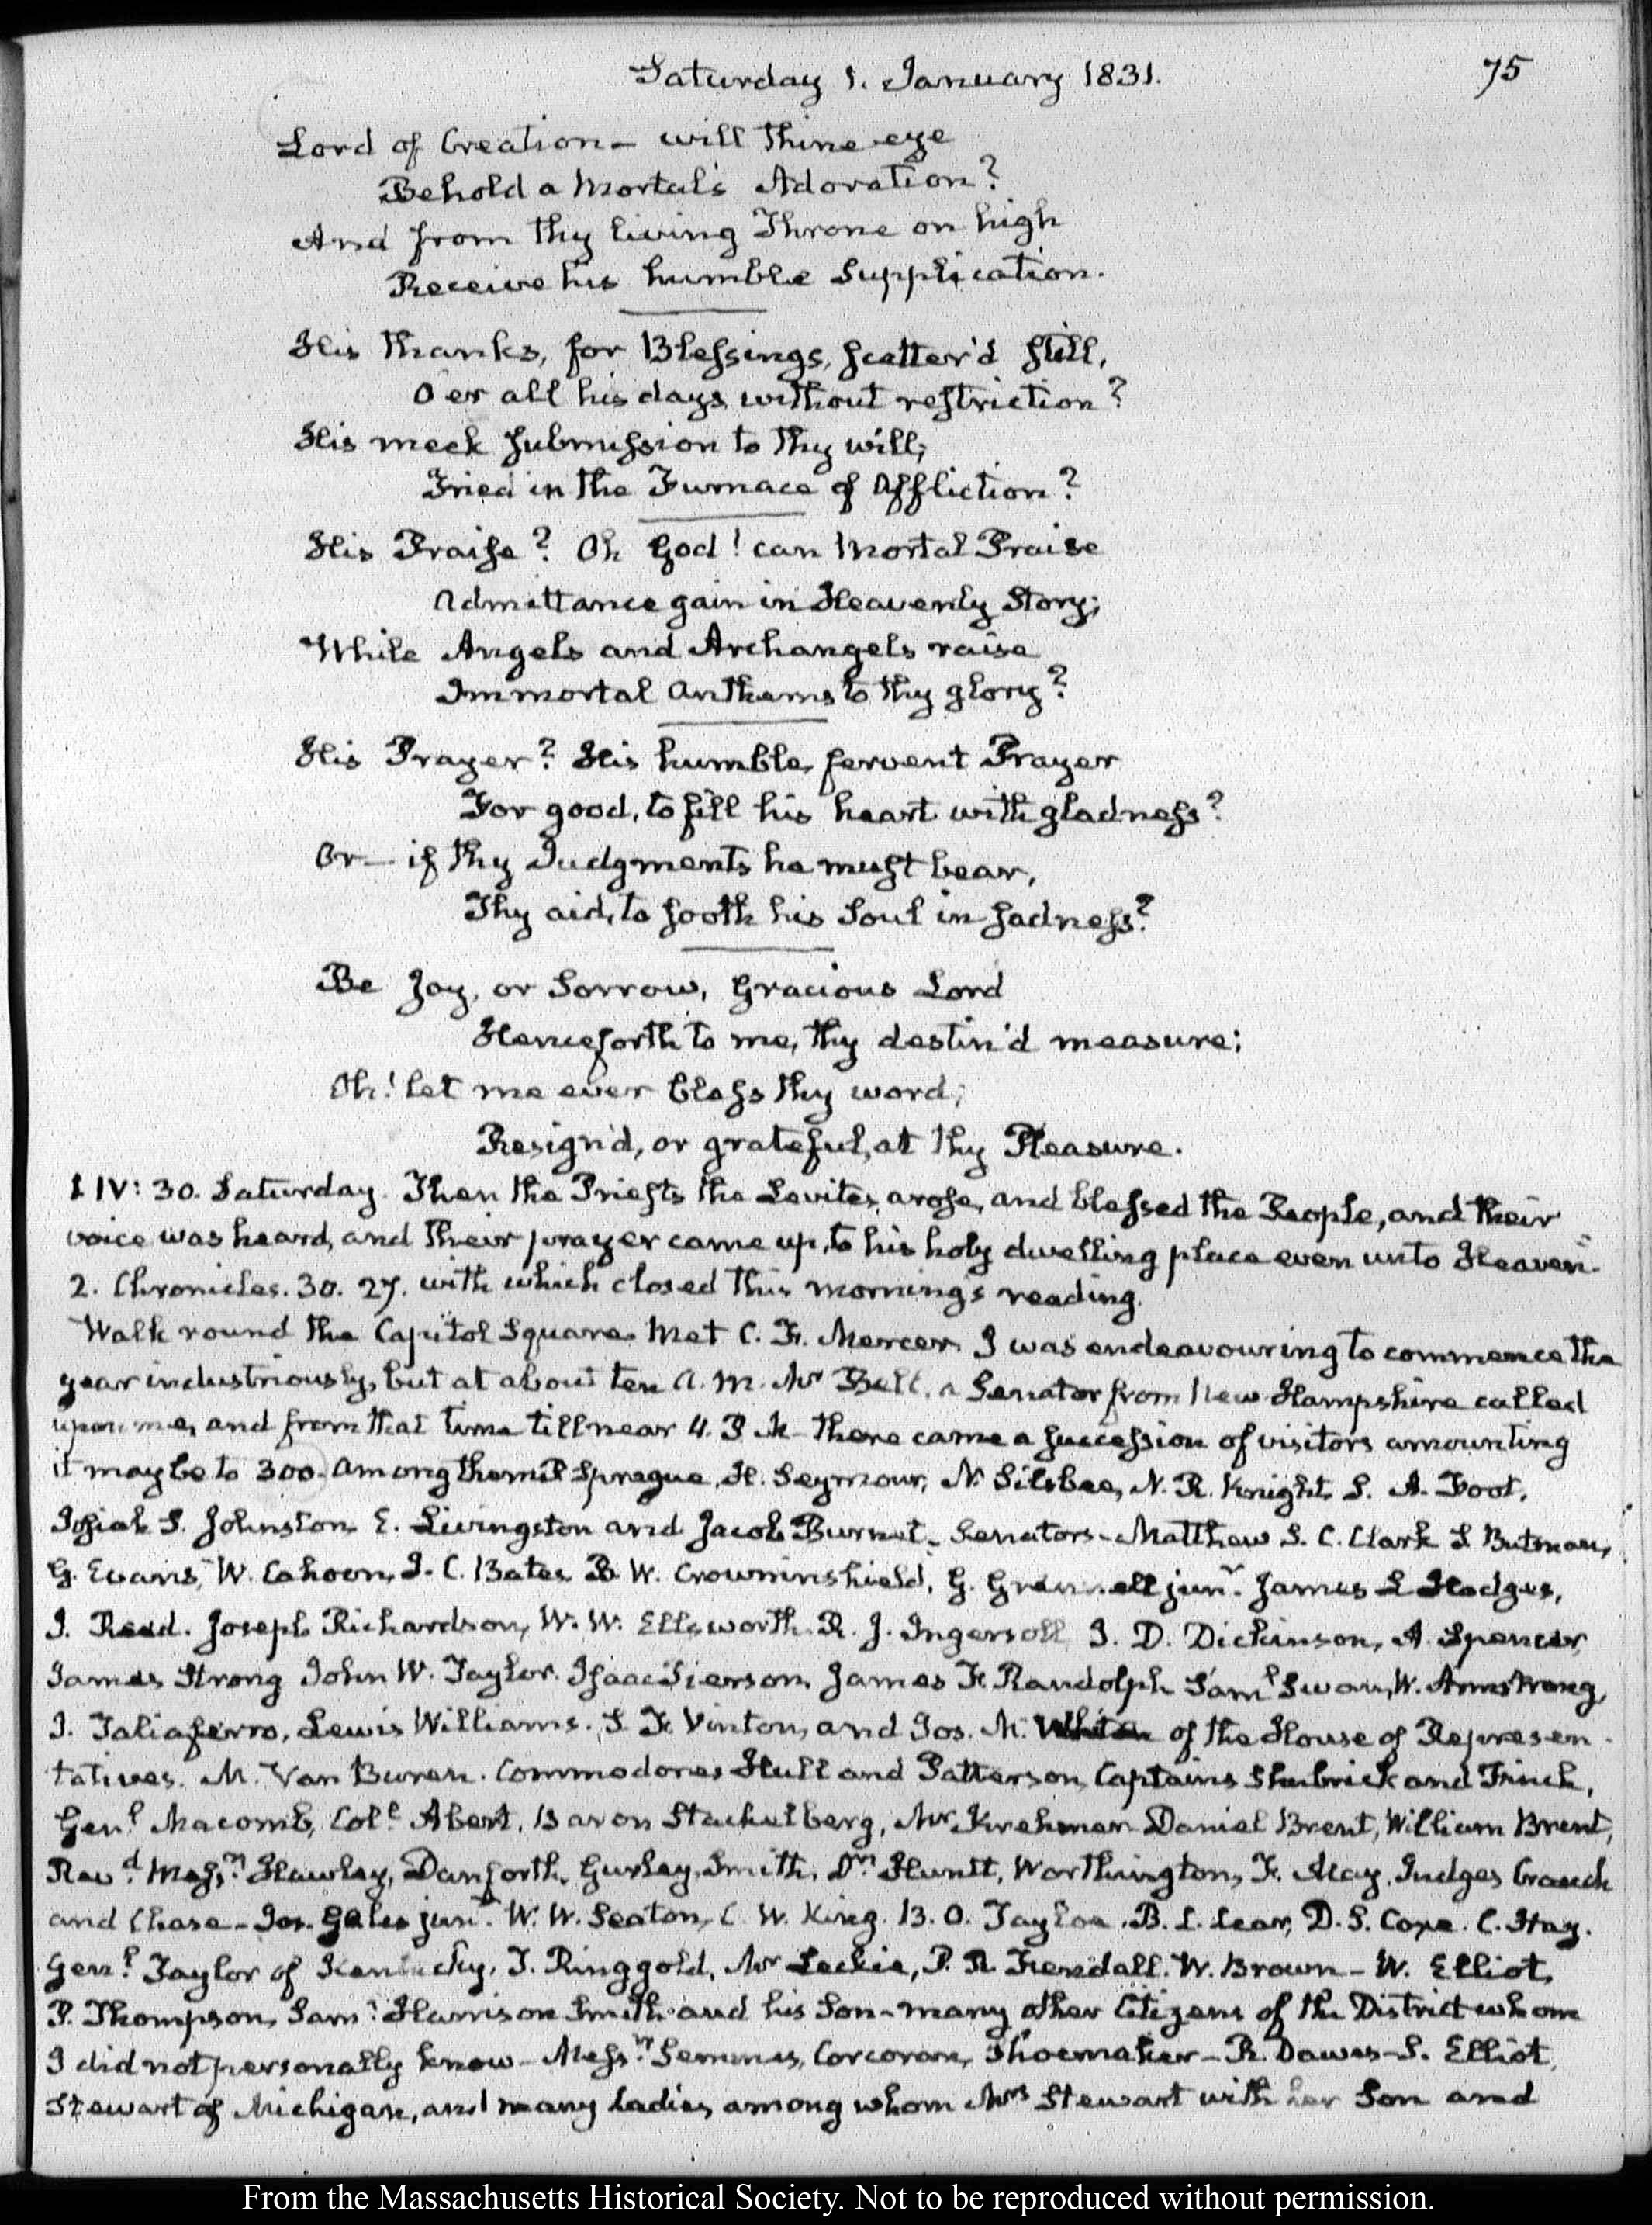 Saturday 1. January 1831.
75
Lord of Creation — will thine eye
Behold a Mortal's Adoration?
And from thy living Throne on high
Receive his humble Supplication.
His thanks, for Blessings, scatter'd still,
O'er all his days without restriction?
His meek submission to thy will;
Tried in the Furnace of Affliction?
His Praise? Oh God! can Mortal Praise
Admittance gain in Heavenly Story;
While Angels and Archangels raise
Immortal Anthems to thy glory?
His Prayer? His humble, fervent Prayer
For good, to fill his heart with gladness?
Or — if thy Judgments he must bear,
Thy aid, to sooth his Soul in sadness?
Be Joy, or Sorrow, Gracious Lord
Henceforth to me, thy destin'd measure;
Oh! let me ever bless thy word;
Resign'd, or grateful, at thy Pleasure.
1 IV: 30. Saturday. Then the Priests the Levites, arose, and blessed the People, and their
voice was heard, and their prayer came up, to his holy dwelling place even unto Heaven.
2. Chronicles. 30. 27. with which closed this morning's reading.
Walk round the Capitol Square. Met C. F. Mercer. I was endeavouring to commence the
year industriously, but at about ten A.M. Mr Bell, a Senator from New Hampshire called
upon me, and from that time till near 4. P.M. there came a succession of visitors amounting
it may be to 300. Among them Sprague, H. Seymour, N. Silsbee, N. R. Knight, S. A. Foot,
Josiah S. Johnston, E. Livingston and Jacob Burnet, Senators — Matthew S. C. Clark S Butman,
G. Evans, W. Cahoon, I. C. Bates B. W. Crowninshield, G. Grennell junr. James L Hodges,
J. Reed. Joseph Richardson, W. W. Ellsworth. R. J. Ingersoll J. D. Dickinson, A. Spencer,
James Strong John W. Taylor. Isaac Pierson, James F. Randolph Saml Swan, W. Armstrong,
J. Taliaferro, Lewis Williams. S. F. Vinton, and Jos. M. White of the House of Represen
tatives. M. Van Buren. Commodores Hull and Patterson, Captains Shubrick and Finch,
Genl Macomb, Coll Abert, Baron Stackelberg, Mr Krehmer Daniel Brent, William Brent,
Revd Messrs Hawley, Danforth, Gurley, Smith, Drs Huntt, Worthington, F. May, Judges Cranch
and Chase — Jos. Gales junr. W. W. Seaton, C. W. King. B. O. Tayloe. B. L. Lear, D. S. Carr. C. Hay.
Genl Taylor of Kentucky, T. Ringgold, Mr Leckie, P. R. Fendall. W. Brown — W. Elliot,
P. Thompson, Saml Harrison Smith and his Son — many other Citizens of the District whom
I did not personally know — Messrs Semmes, Corcoran, Shoemaker — R. Dawes — S. Elliot,
Stewart of Michigan, and many ladies, among whom Mrs Stewart with her Son and
From the Massachusetts Historical Society. Not to be reproduced without permission.